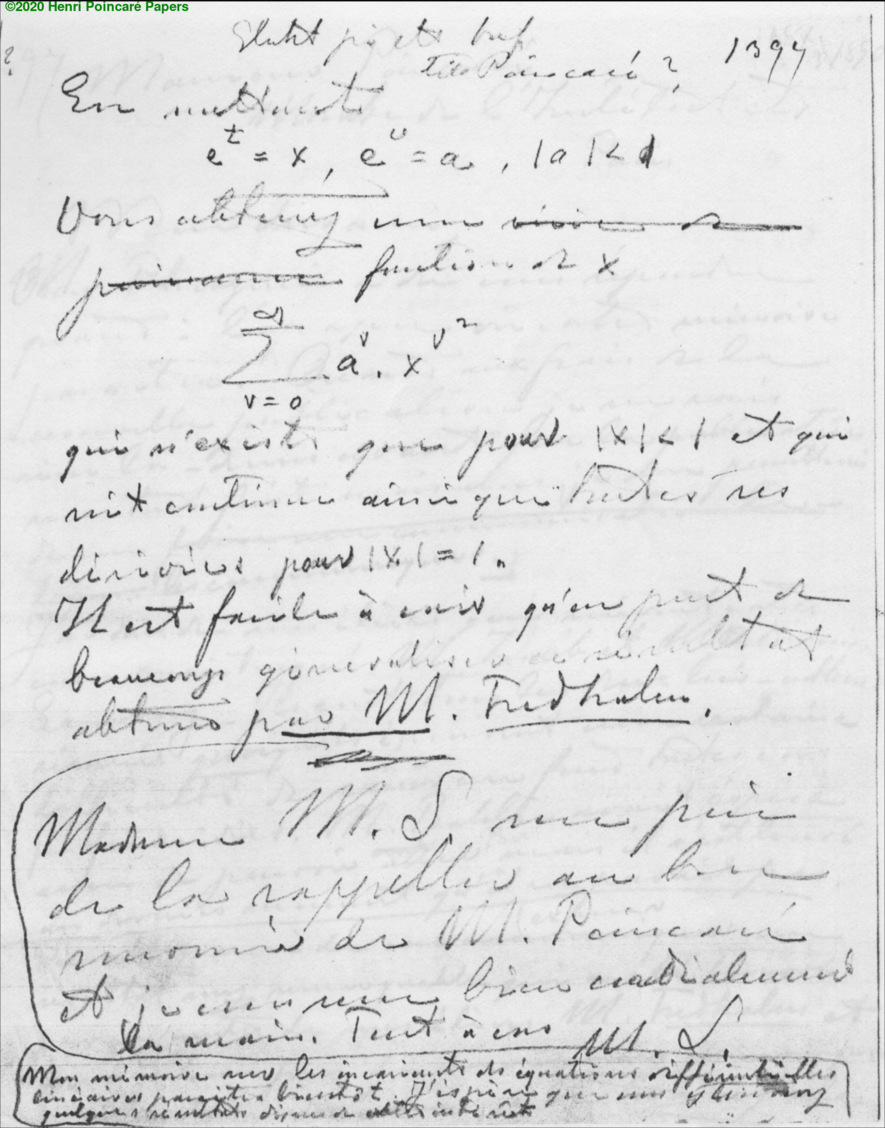 ©2020 Henri Poincaré Papers
?
Slutet på ett bref
till Poincaré? 1394
En mettant
e^t = x, e^u = a, |a|<1
Vous obtenez une
puissance fonction de x
∞
∑ a^ν. x^ν²
ν=0
qui n'existe que pour |x|<1 et qui
est continue ainsi que toutes ses
dérivées pour |x|=1.
Il est facile à voir qu'on peut de
beaucoup généraliser ce résultat
obtenu par M. Fredholm.
Madame M. L. me prie
de la rappeller au bon
de M. Poincaré
et je bien cordialement
la main. Tout à vous
M. L.
Mon mémoire sur les invariants des équations différentielles
linéaires paraîtra bientôt. J'espère que vous
quelques résultats